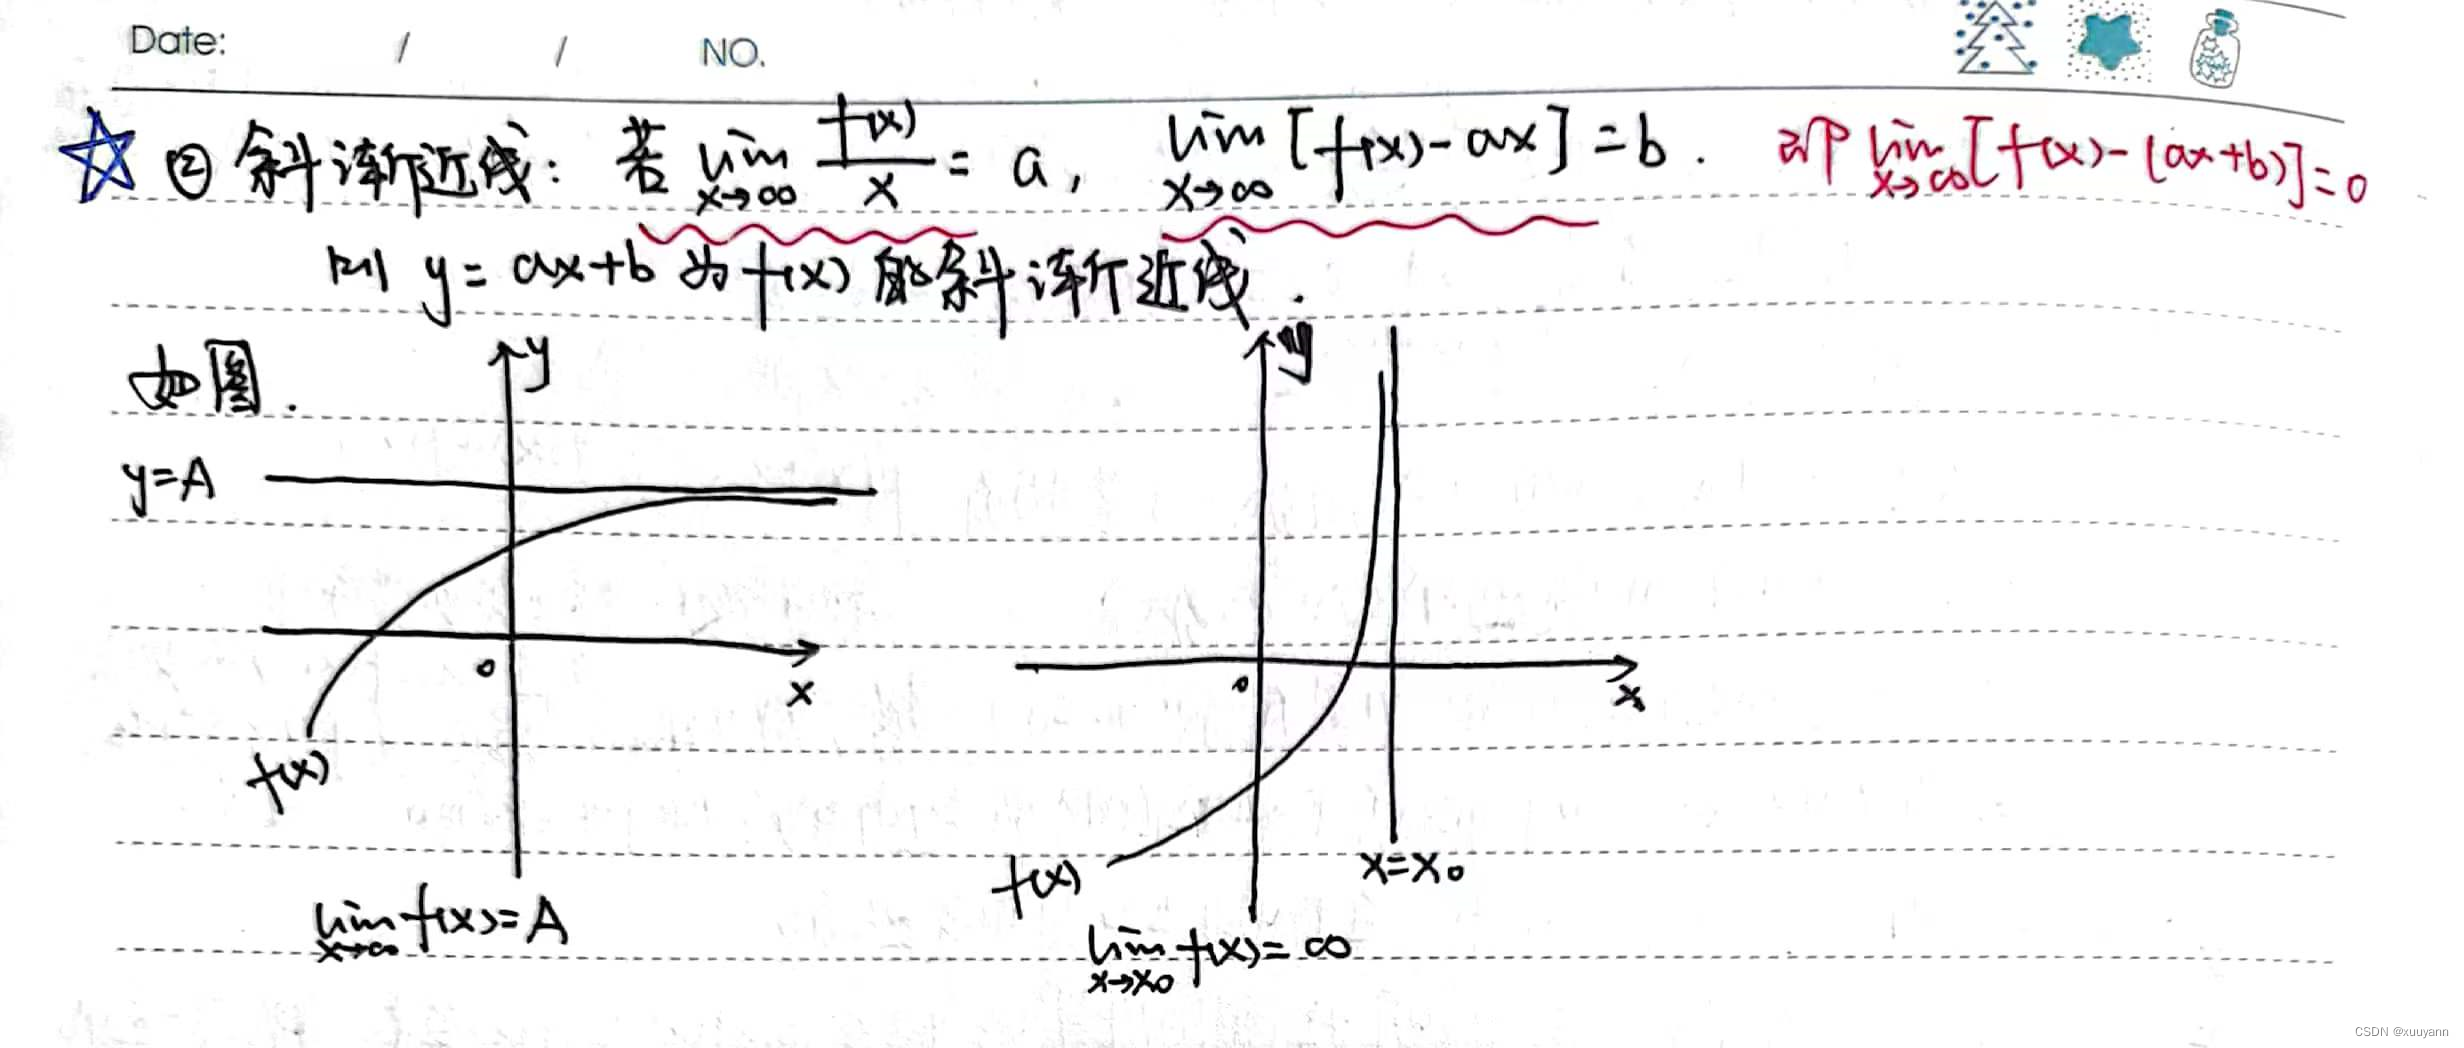 Date: / / NO.
☆ ② 斜渐近线: 若 lim x→∞ f(x)/x = a, lim x→∞ [f(x)-ax] = b. 即 lim x→∞ [f(x)-(ax+b)]=0
则 y=ax+b 为 f(x) 的斜渐近线.
如图.
y
y
y=A
0
x
0
x
f(x)
x=x₀
f(x)
lim x→∞ f(x)=A
lim x→x₀ f(x)=∞
CSDN @xuuyann